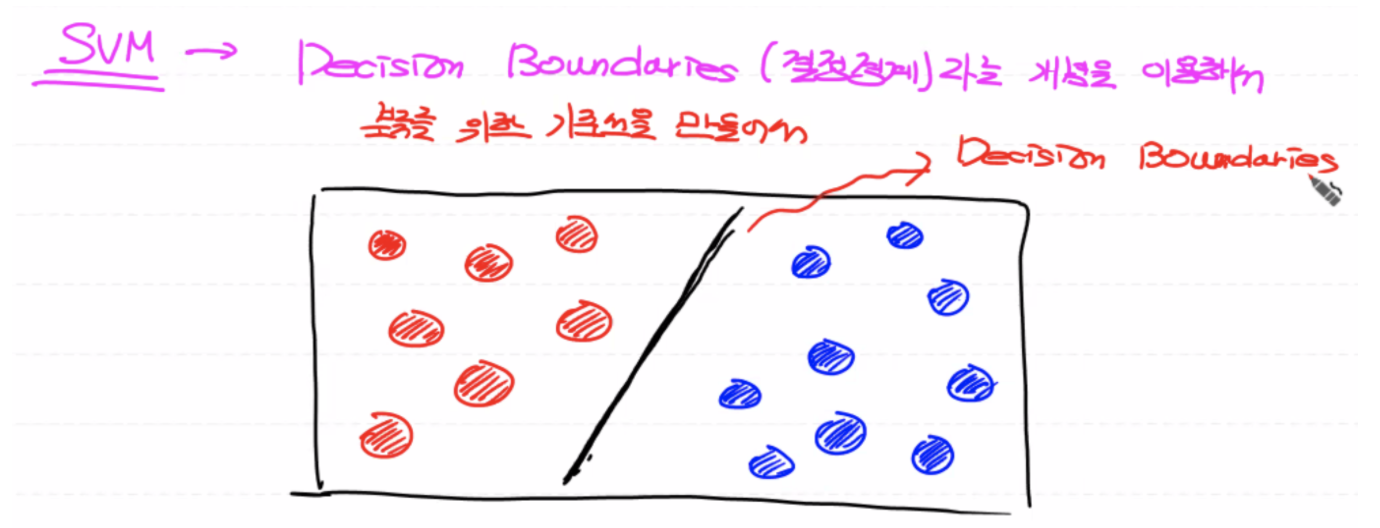 SVM → Decision Boundaries (결정경계)라는 개념을 이용해서
분류를 위한 기준선을 만들어서
Decision Boundaries